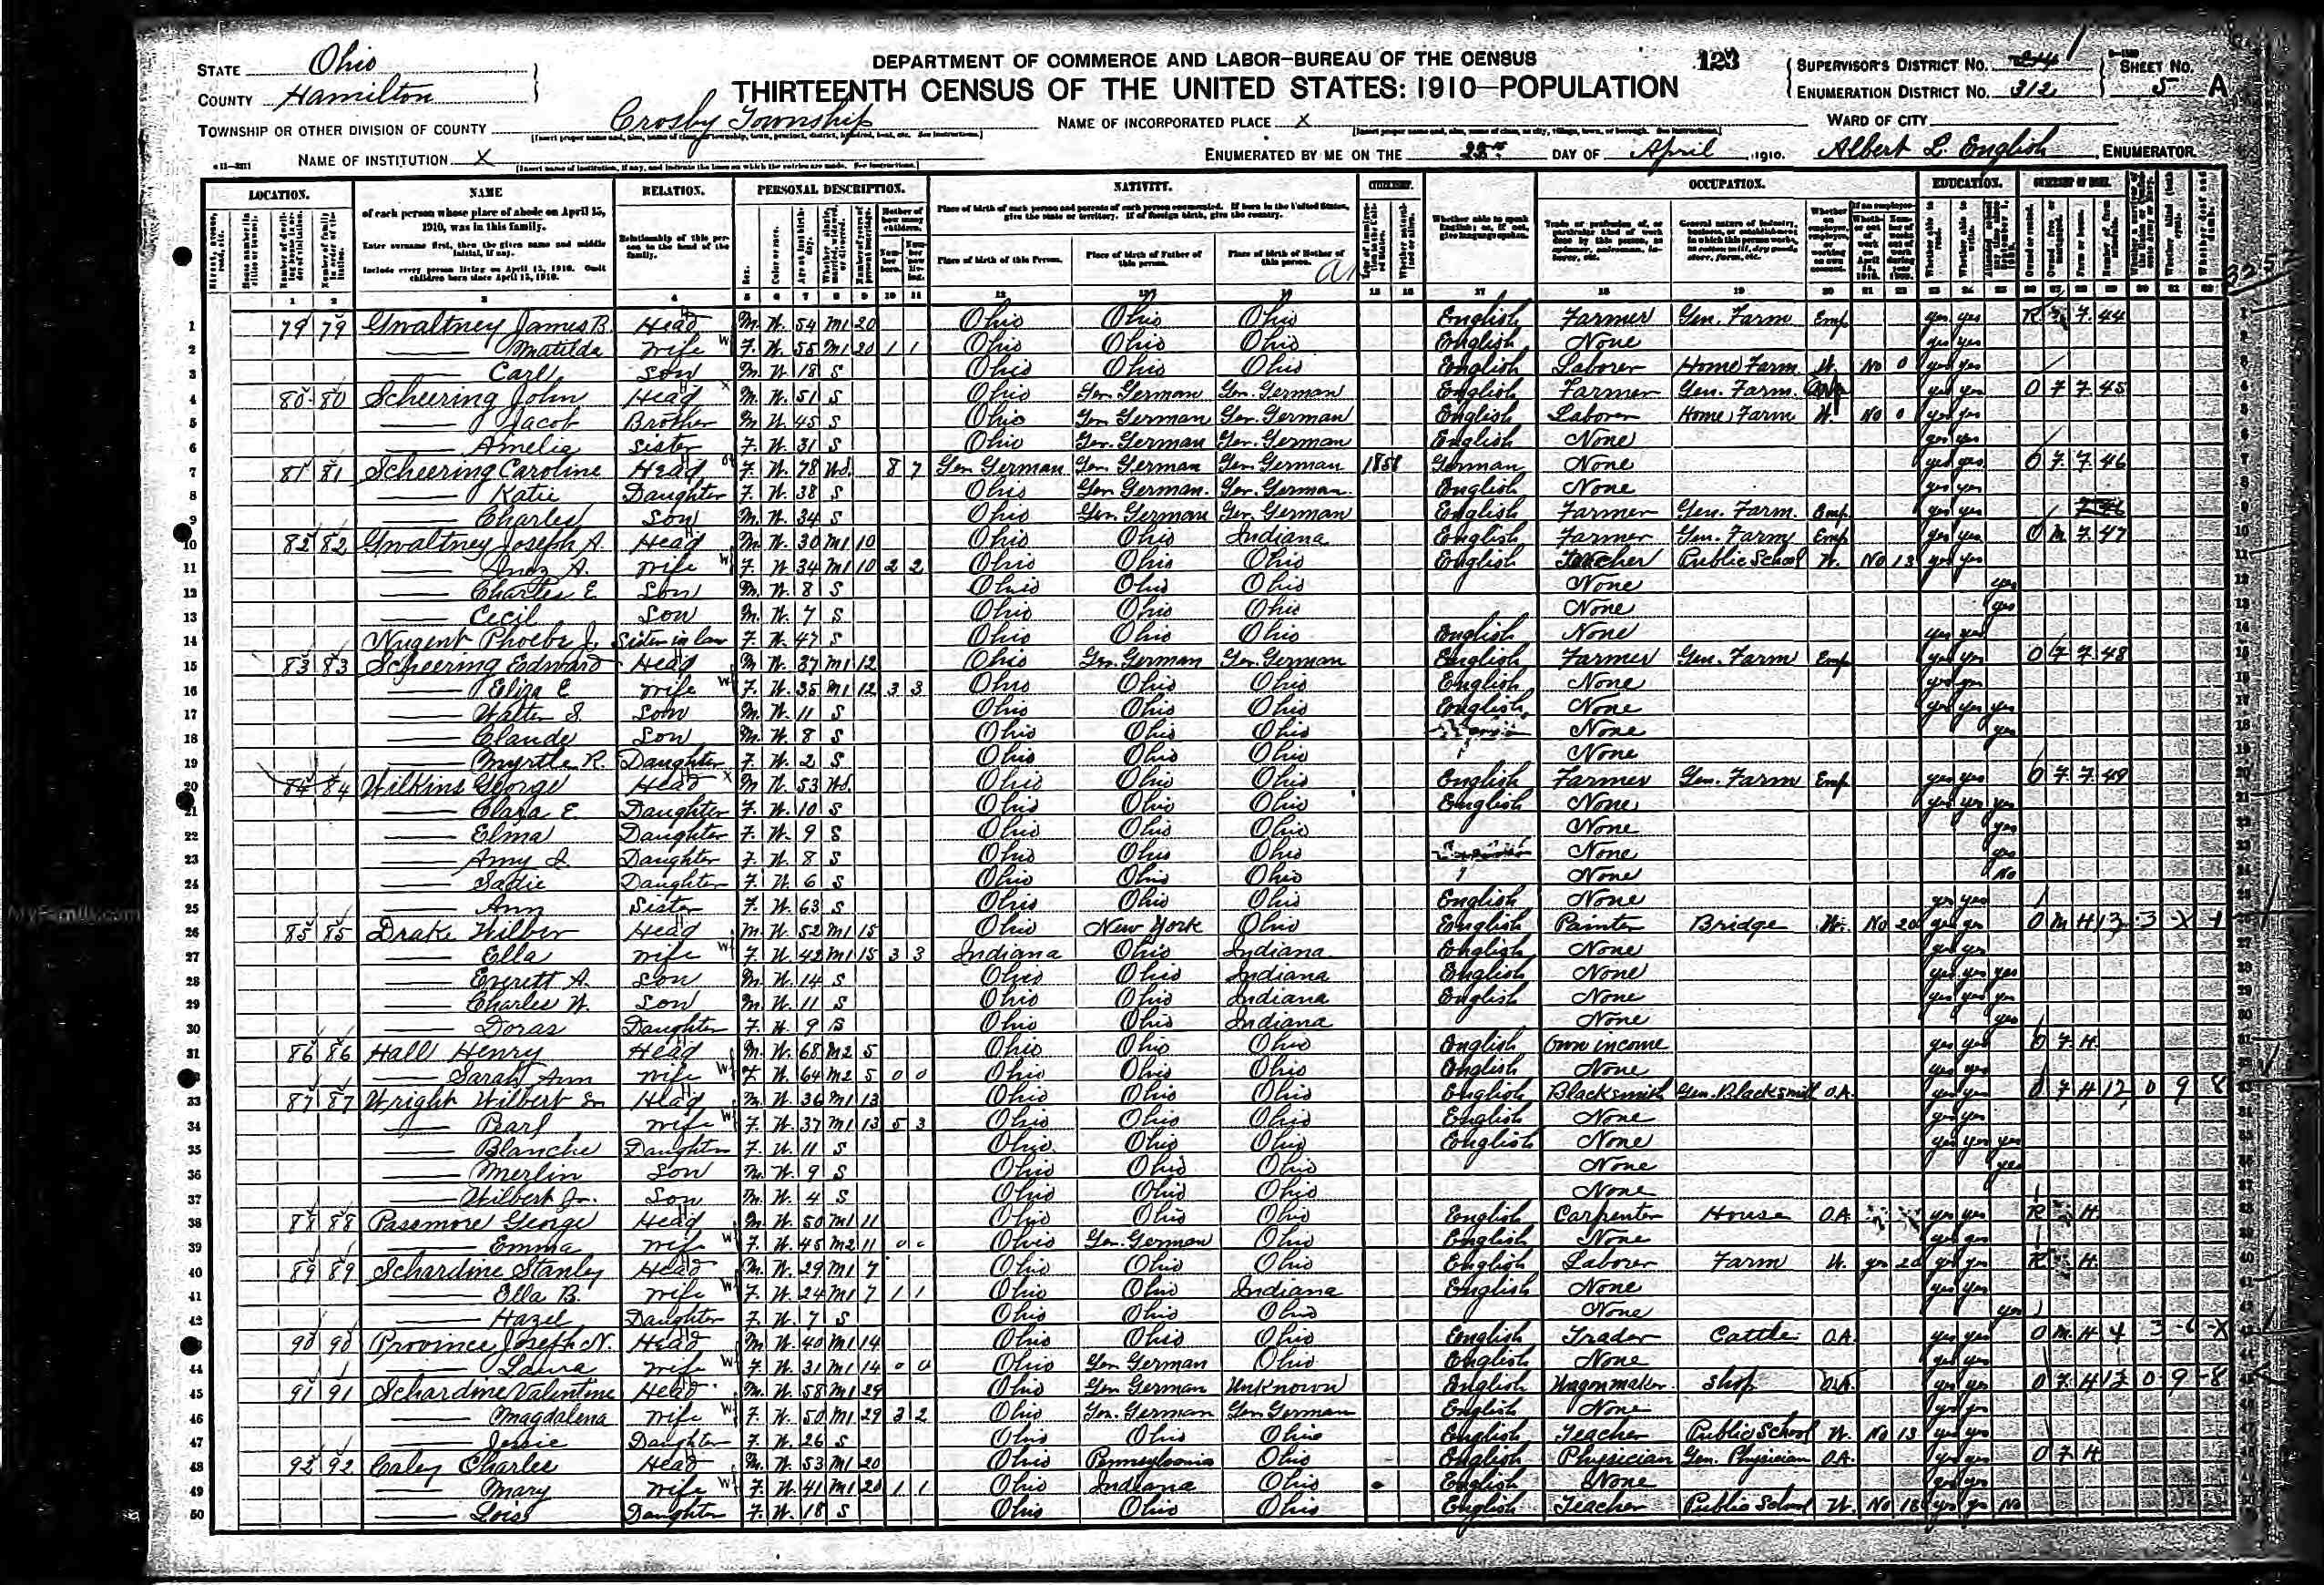 DEPARTMENT OF COMMERCE AND LABOR—BUREAU OF THE CENSUS
THIRTEENTH CENSUS OF THE UNITED STATES: 1910—POPULATION
123
STATE Ohio
COUNTY Hamilton
TOWNSHIP OR OTHER DIVISION OF COUNTY Crosby Township
NAME OF INSTITUTION X
NAME OF INCORPORATED PLACE X
ENUMERATED BY ME ON THE DAY OF April, 1910.
SUPERVISOR'S DISTRICT No. 1
ENUMERATION DISTRICT No. 212
SHEET No. 5 A
WARD OF CITY
Albert L. English, ENUMERATOR.
LOCATION. NAME RELATION. PERSONAL DESCRIPTION. NATIVITY. CITIZENSHIP. OCCUPATION. EDUCATION.
of each person whose place of abode on April 15, 1910, was in this family.
Enter surname first, then the given name and middle initial, if any.
Include every person living on April 15, 1910. Omit children born since April 15, 1910.
Relationship of this person to the head of the family.
Place of birth of this Person. Place of birth of Father of this person. Place of birth of Mother of this person.
Whether able to speak English; or, if not, give language spoken.
1 79 79 Gwaltney James B. Head M. W. 54 M1 20 Ohio Ohio Ohio English Farmer Gen. Farm Emp yes yes R 7. 44
2 Matilda Wife F. W. 55 M1 20 1 1 Ohio Ohio Ohio English None yes yes
3 Carl Son M. W. 18 S Ohio Ohio Ohio English Laborer Home Farm W. No 0 yes yes
4 80 80 Scheering John Head M. W. 51 S Ohio Ger. German Ger. German English Farmer Gen. Farm yes yes O 7 7. 45
5 Jacob Brother M W. 45 S Ohio Ger. German Ger. German English Laborer Home Farm W. No 0 yes yes
6 Amelia Sister F. W. 31 S Ohio Ger. German Ger. German English None yes yes
7 81 81 Scheering Caroline Head F. W. 78 Wd. 8 7 Ger. German Ger. German Ger. German 1858 German None yes yes O 7. 7. 46
8 Katie Daughter F. W. 38 S Ohio Ger. German. Ger. German. English None yes yes
9 Charles Son M. W. 34 S Ohio Ger. German Ger. German English Farmer Gen. Farm. Emp. yes yes
10 82 82 Gwaltney Joseph A. Head M. W. 30 M1 10 Ohio Ohio Indiana English Farmer Gen. Farm Emp yes yes O M 7. 47
11 Inez A. Wife F. W. 34 M1 10 2 2 Ohio Ohio Ohio English Teacher Public School W. No 13 yes yes
12 Charles E Son M. W. 8 S Ohio Ohio Ohio None yes
13 Cecil Son M. W. 7 S Ohio Ohio Ohio None yes
14 Nugent Phoebe J. Sister in law F. W. 47 S Ohio Ohio Ohio English None yes yes
15 83 83 Scheering Edward Head M W. 37 M1 12 Ohio Ger. German Ger. German English Farmer Gen. Farm Emp yes yes O 7 7. 48
16 Eliza E Wife F. W. 35 M1 12 3 3 Ohio Ohio Ohio English None yes yes
17 Walter S. Son M. W. 11 S Ohio Ohio Ohio English None yes yes yes
18 Claude Son M. W. 8 S Ohio Ohio Ohio None yes
19 Myrtle R. Daughter F. W. 2 S Ohio Ohio Ohio None
20 84 84 Wilkins George Head M W. 53 Wd. Ohio Ohio Ohio English Farmer Gen. Farm Emp. yes yes O 7. 7. 49
21 Clara E. Daughter F. W. 10 S Ohio Ohio Ohio English None yes yes yes
22 Elma Daughter F. W. 9 S Ohio Ohio Ohio None yes
23 Amy I. Daughter F. W. 8 S Ohio Ohio Ohio None yes
24 Sadie Daughter F. W. 6 S Ohio Ohio Ohio None No
25 Ann Sister F. W. 63 S Ohio Ohio Ohio English None yes yes
26 85 85 Drake Wilber Head M. W. 52 M1 15 Ohio New York Ohio English Painter Bridge W. No 20 yes yes O M H 13 3 X 1
27 Ella Wife F. W. 42 M1 15 3 3 Indiana Ohio Indiana English None yes yes
28 Everett A. Son M. W. 14 S Ohio Ohio Indiana English None yes yes yes
29 Charles W. Son M. W. 11 S Ohio Ohio Indiana English None yes yes yes
30 Doras Daughter F. W. 9 S Ohio Ohio Indiana None yes
31 86 86 Hall Henry Head M. W. 68 M2 5 Ohio Ohio Ohio English Own income yes yes O 7 H
32 Sarah Ann Wife F W. 64 M2 5 0 0 Ohio Ohio Ohio English None yes yes
33 87 87 Wright Wilbert Sr. Head M. W. 36 M1 13 Ohio Ohio Ohio English Blacksmith Gen. Blacksmith O.A. yes yes O 7 H 12 0 9 8
34 Parl Wife F. W. 37 M1 13 5 3 Ohio Ohio Ohio English None yes yes
35 Blanche Daughter F. W. 11 S Ohio Ohio Ohio English None yes yes yes
36 Merlin Son M. W. 9 S Ohio Ohio Ohio None yes
37 Wilbert Jr. Son M. W. 4 S Ohio Ohio Ohio None
38 88 88 Passmore George Head M. W. 50 M1 11 Ohio Ohio Ohio English Carpenter House O.A. yes yes R H
39 Emma Wife F. W. 45 M2 11 0 0 Ohio Ger. German Ohio English None yes yes
40 89 89 Schardine Stanley Head M. W. 29 M1 7 Ohio Ohio Ohio English Laborer Farm W. yes 20 yes yes R H.
41 Ella B. Wife F. W. 24 M1 7 1 1 Ohio Ohio Indiana English None yes yes
42 Hazel Daughter F. W. 7 S Ohio Ohio Ohio None yes
43 90 90 Province Joseph N. Head M W. 40 M1 14 Ohio Ohio Ohio English Trader Cattle O.A. yes yes O M. H 4 3 6 X
44 Laura Wife F. W. 31 M1 14 0 0 Ohio Ger. German Ohio English None yes yes
45 91 91 Schardine Valintine Head M. W. 58 M1 29 Ohio Ger. German Unknown English Wagonmaker Shop O.A. yes yes O 7. H 12 0 9 8
46 Magdalena Wife F. W. 50 M1 29 3 2 Ohio Ger. German Ger. German English None yes yes
47 Jessie Daughter F. W. 26 S Ohio Ohio Ohio English Teacher Public School W. No 13 yes yes
48 92 92 Caley Charles Head M. W. 53 M1 20 Ohio Pennsylvania Ohio English Physician Gen. Physician O.A. yes yes O 7 H
49 Mary Wife F. W. 41 M1 20 1 1 Ohio Indiana Ohio English None yes yes
50 Lois Daughter F. W. 18 S Ohio Ohio Ohio English Teacher Public School W. No 18 yes yes No
MyFamily.com